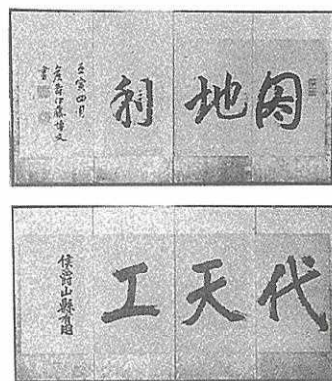 因地利
壬寅四月
侯爵伊藤博文
書
代天工
侯爵山縣有朋